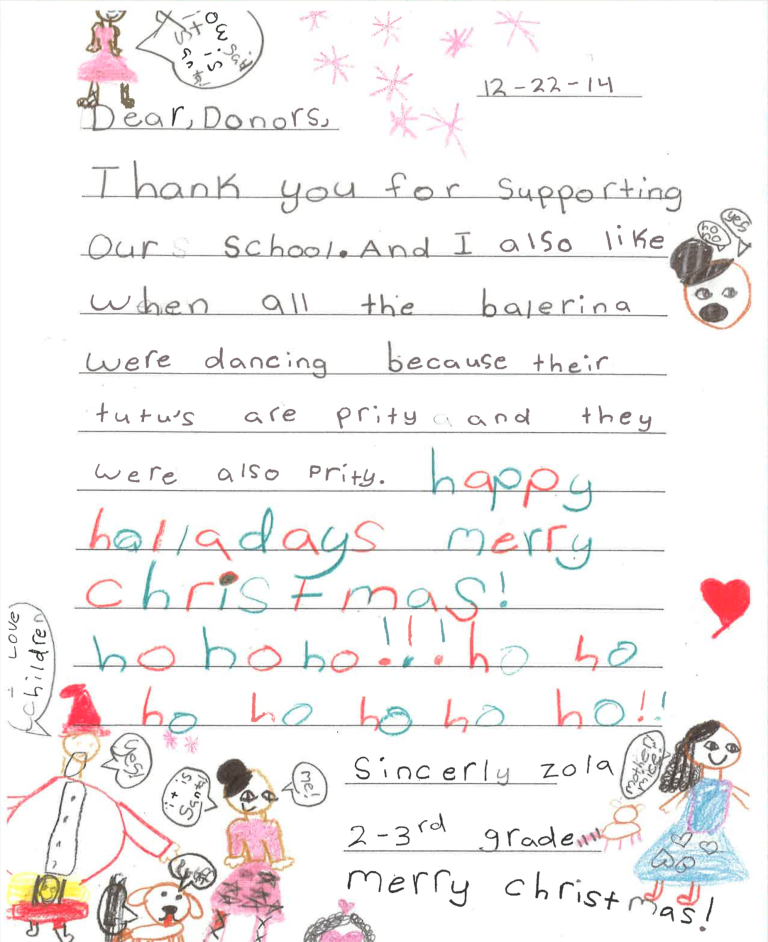 12-22-14
Dear, Donors,
Thank you for supporting
our school. And I also like
yes
ho ho
when all the balerina
were dancing because their
tutu's are prity and they
were also prity. happy
halladays merry
christmas!
ho ho ho!!! ho ho
ho ho ho ho ho!!
I LOVE
children
yes!
me!
Sincerly zola
2-3rd grade
merry christmas!